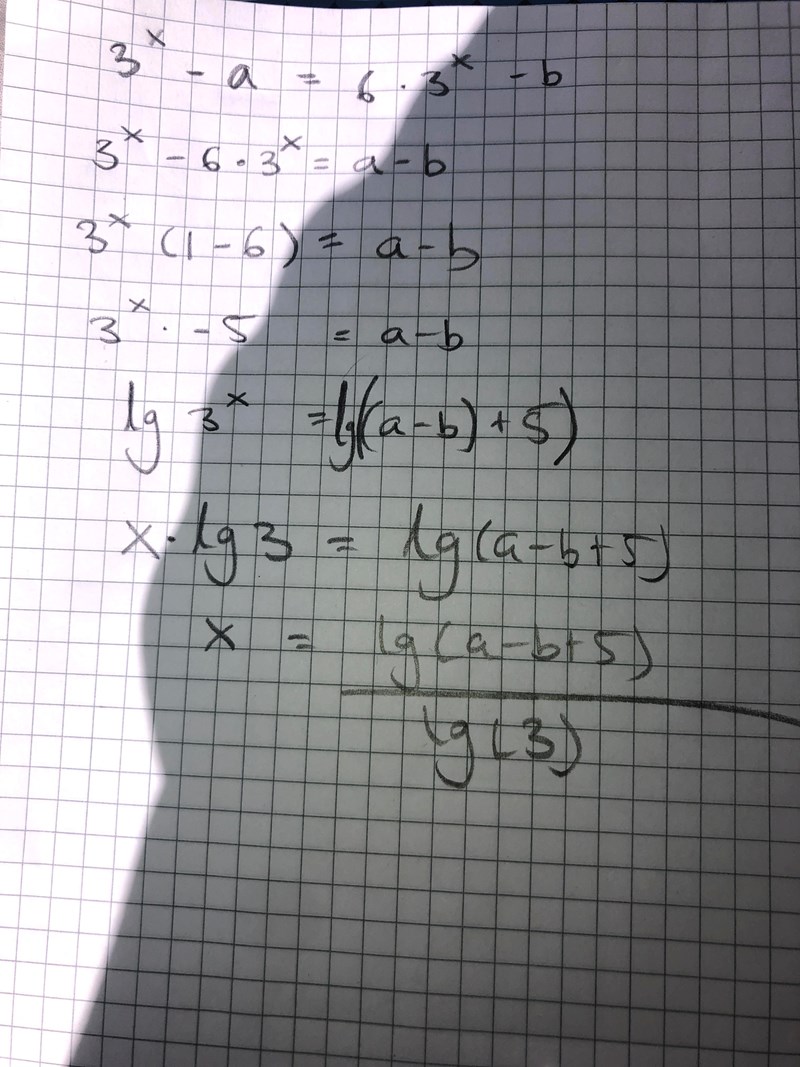 3^x - a = 6 · 3^x - b
3^x - 6 · 3^x = a - b
3^x (1 - 6) = a - b
3^x · - 5 = a - b
lg 3^x = lg((a - b) + 5)
x · lg 3 = lg(a - b + 5)
x = lg(a - b + 5)
lg(3)